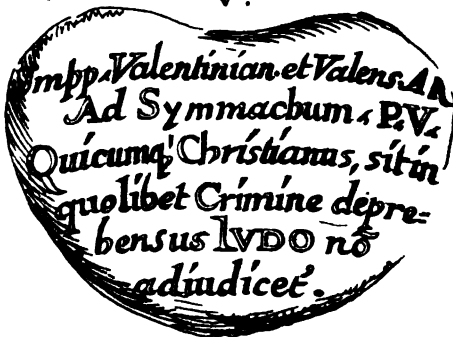 Impp. Valentinian. et Valens. A
Ad Symmachum. P. V.
Quicumq; Christianus, sit in
quolibet Crimine depre=
hensus lVDO nō
adiudicet᷒.